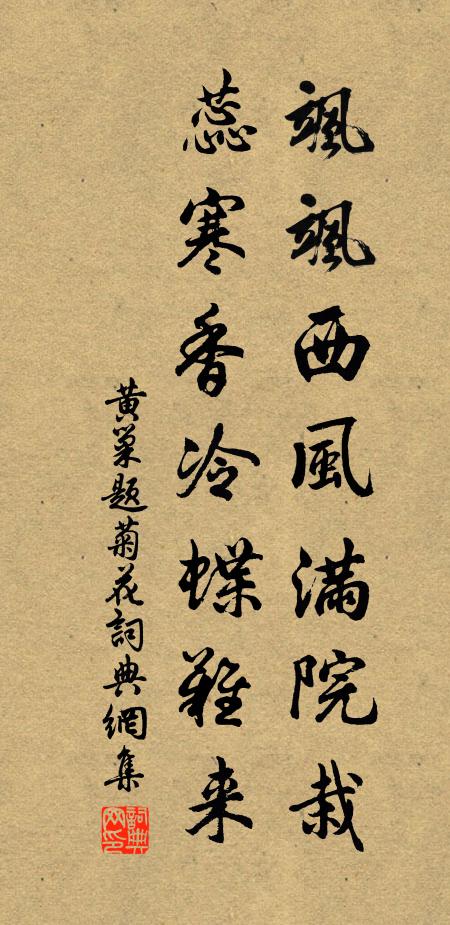 颯颯西風滿院栽
蕊寒香冷蝶難来
黃巢題菊花詞典網集
詞典网印